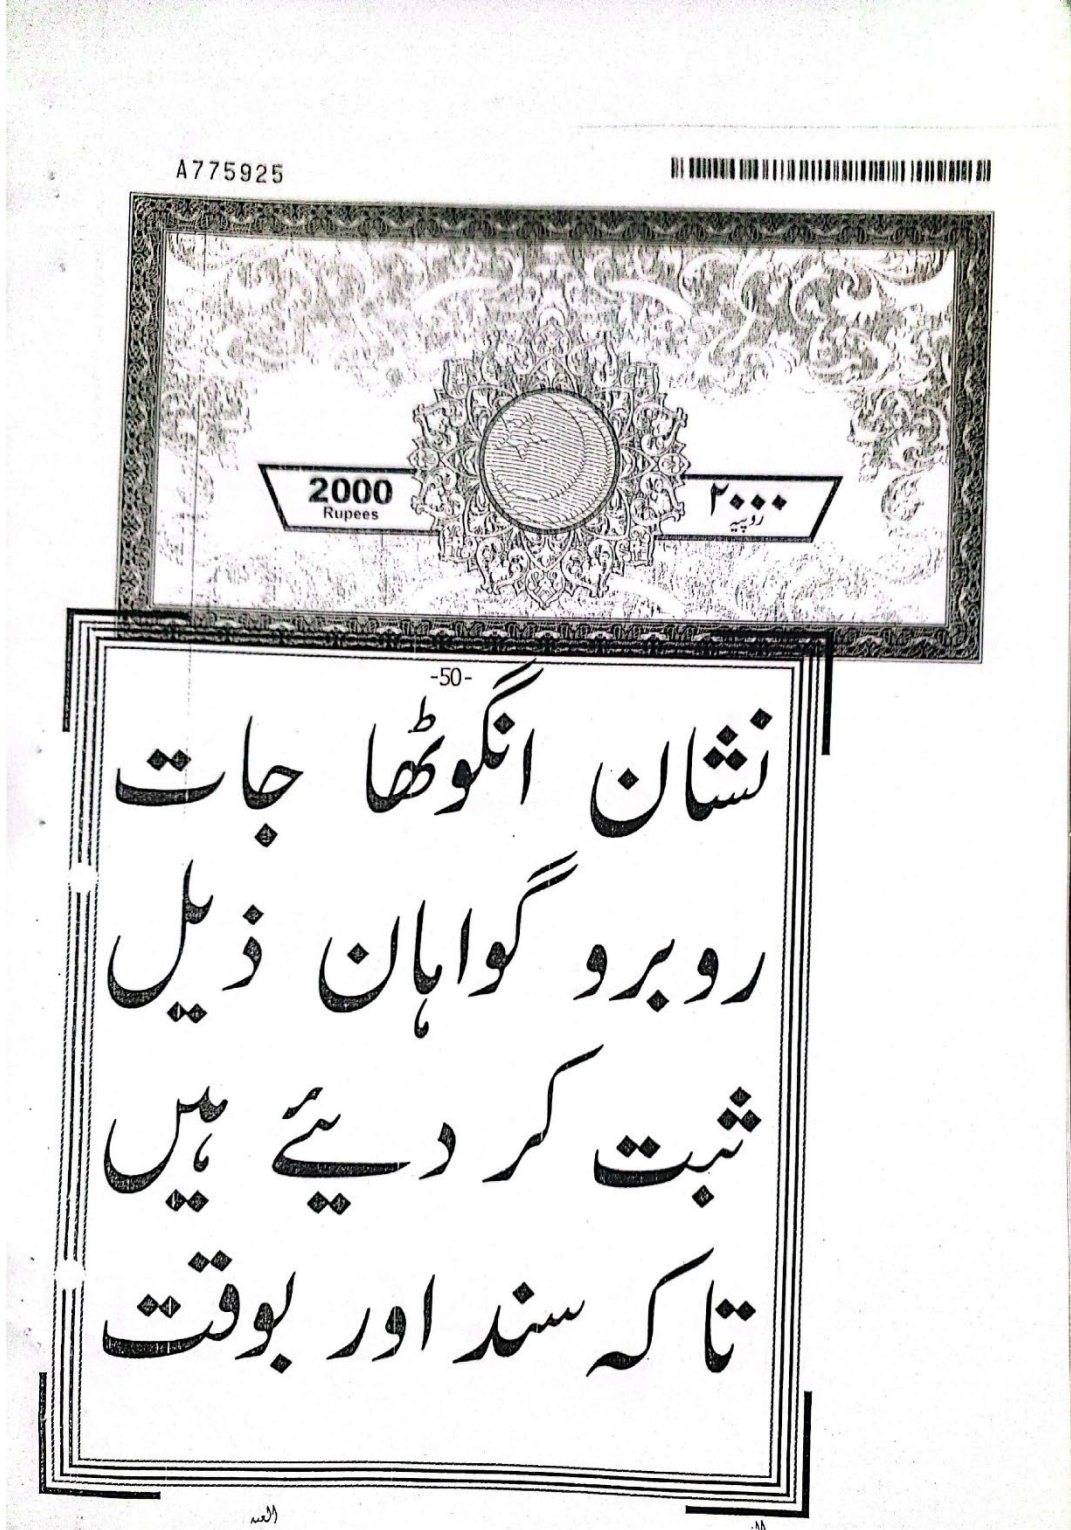 A775925
2000
Rupees
۲۰۰۰
روپیہ
-50-
نشان انگوٹھا جات
روبرو گواہان ذیل
ثبت کر دیئے ہیں
تا کہ سند اور بوقت
العبد